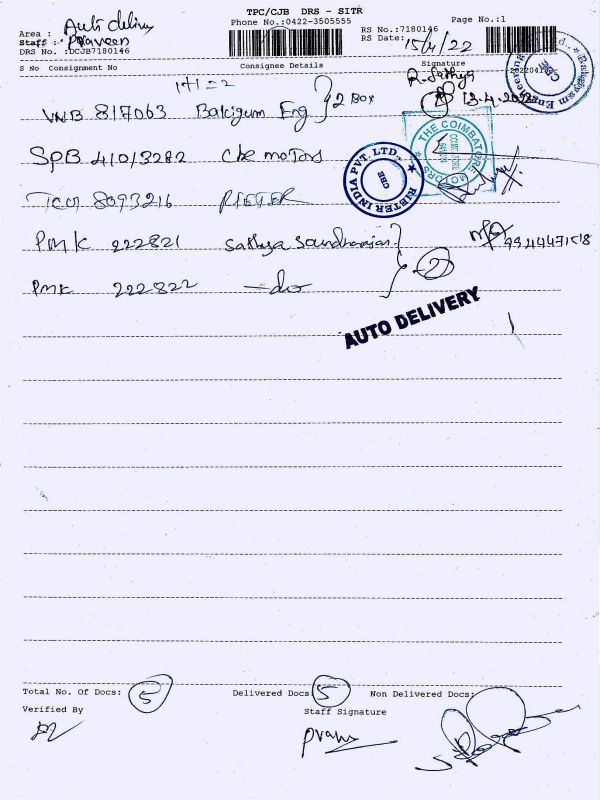 TPC/CJB DRS - SITR
Phone No.:0422-3505555
Page No.:1
Area : Auto delivery
Staff : Praveen
DRS No. :DCJB7180146
RS No.:7180146
RS Date: 15/4/22
S No Consignment No Consignee Details Signature
1+1=2
R. Sathya
13.4.2022
VNB 817063 Balaigum Eng } 2 Box
SPB 41013282 Cbe motors
THE COIMBATORE MOTORS
RIETER INDIA PVT. LTD.,
CBE
TCM 8093216 RIETER
PMK 222821 Sathya Soundharajan
9944471518
PMK 222822 —do
2
AUTO DELIVERY
Total No. Of Docs: 5 Delivered Docs: 5 Non Delivered Docs:
Verified By Staff Signature